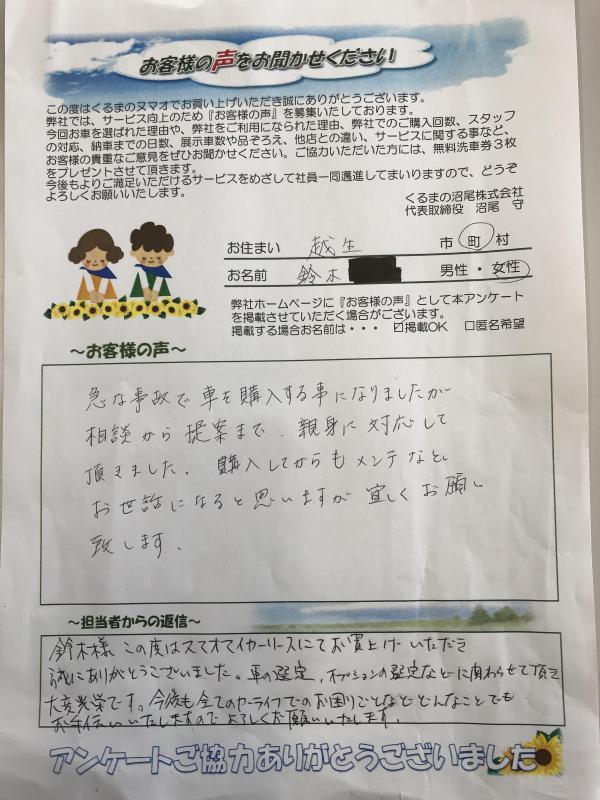 お客様の声をお聞かせください
この度はくるまのヌマオでお買い上げいただき誠にありがとうございます。
弊社では、サービス向上のため『お客様の声』を募集いたしております。
今回お車を選ばれた理由や、弊社をご利用になられた理由、弊社でのご購入回数、スタッフ
の対応、納車までの日数、展示車数や品ぞろえ、他店との違い、サービスに関する事など、
お客様の貴重なご意見をぜひお聞かせください。ご協力いただいた方には、無料洗車券３枚
をプレゼントさせて頂きます。
今後もよりご満足いただけるサービスをめざして社員一同邁進してまいりますので、どうぞ
よろしくお願いいたします。
くるまの沼尾株式会社
代表取締役 沼尾 守
お住まい 越生 市 町 村
お名前 鈴木 男性・女性
弊社ホームページに『お客様の声』として本アンケート
を掲載させていただく場合がございます。
掲載する場合お名前は・・・ ☑掲載OK □匿名希望
～お客様の声～
急な事故で車を購入する事になりましたが
相談から提案まで、親身に対応して
頂きました。購入してからもメンテなど、
お世話になると思いますが宜しくお願い
致します。
～担当者からの返信～
鈴木様、この度はスマオマイカーリースにてお買上げいただき
誠にありがとうございました。車の選定、オプションの選定などに関わらせて頂き
大変光栄です。今後も全てのカーライフでのお困りごとなどどんなことでも
お手伝いいたしますのでよろしくお願いいたします。
アンケートご協力ありがとうございました